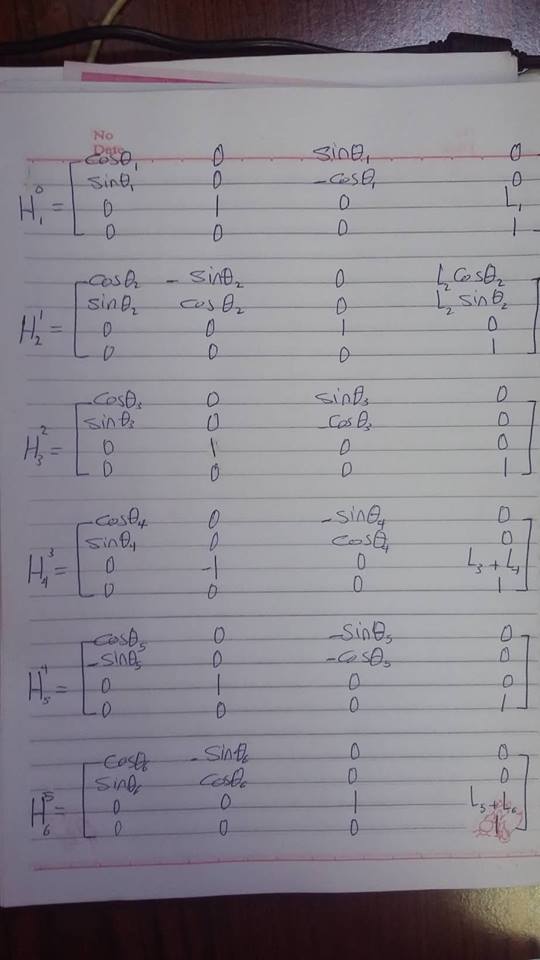 No
Date
cosθ₁ 0 sinθ₁ 0
sinθ₁ 0 -cosθ₁ 0
H₁⁰ = 0 1 0 L₁
0 0 0 1
cosθ₂ - sinθ₂ 0 L₂cosθ₂
sinθ₂ cosθ₂ 0 L₂sinθ₂
H₂¹ = 0 0 1 0
0 0 0 1
cosθ₃ 0 sinθ₃ 0
sinθ₃ 0 -cosθ₃ 0
H₃² = 0 1 0 0
0 0 0 1
cosθ₄ 0 -sinθ₄ 0
sinθ₄ 0 cosθ₄ 0
H₄³ = 0 -1 0 L₃ + L₄
0 0 0 1
cosθ₅ 0 -sinθ₅ 0
-sinθ₅ 0 -cosθ₅ 0
H₅⁴ = 0 1 0 0
0 0 0 1
cosθ₆ - sinθ₆ 0 0
sinθ₆ cosθ₆ 0 0
H₆⁵ = 0 0 1 L₅ + L₆
0 0 0 1